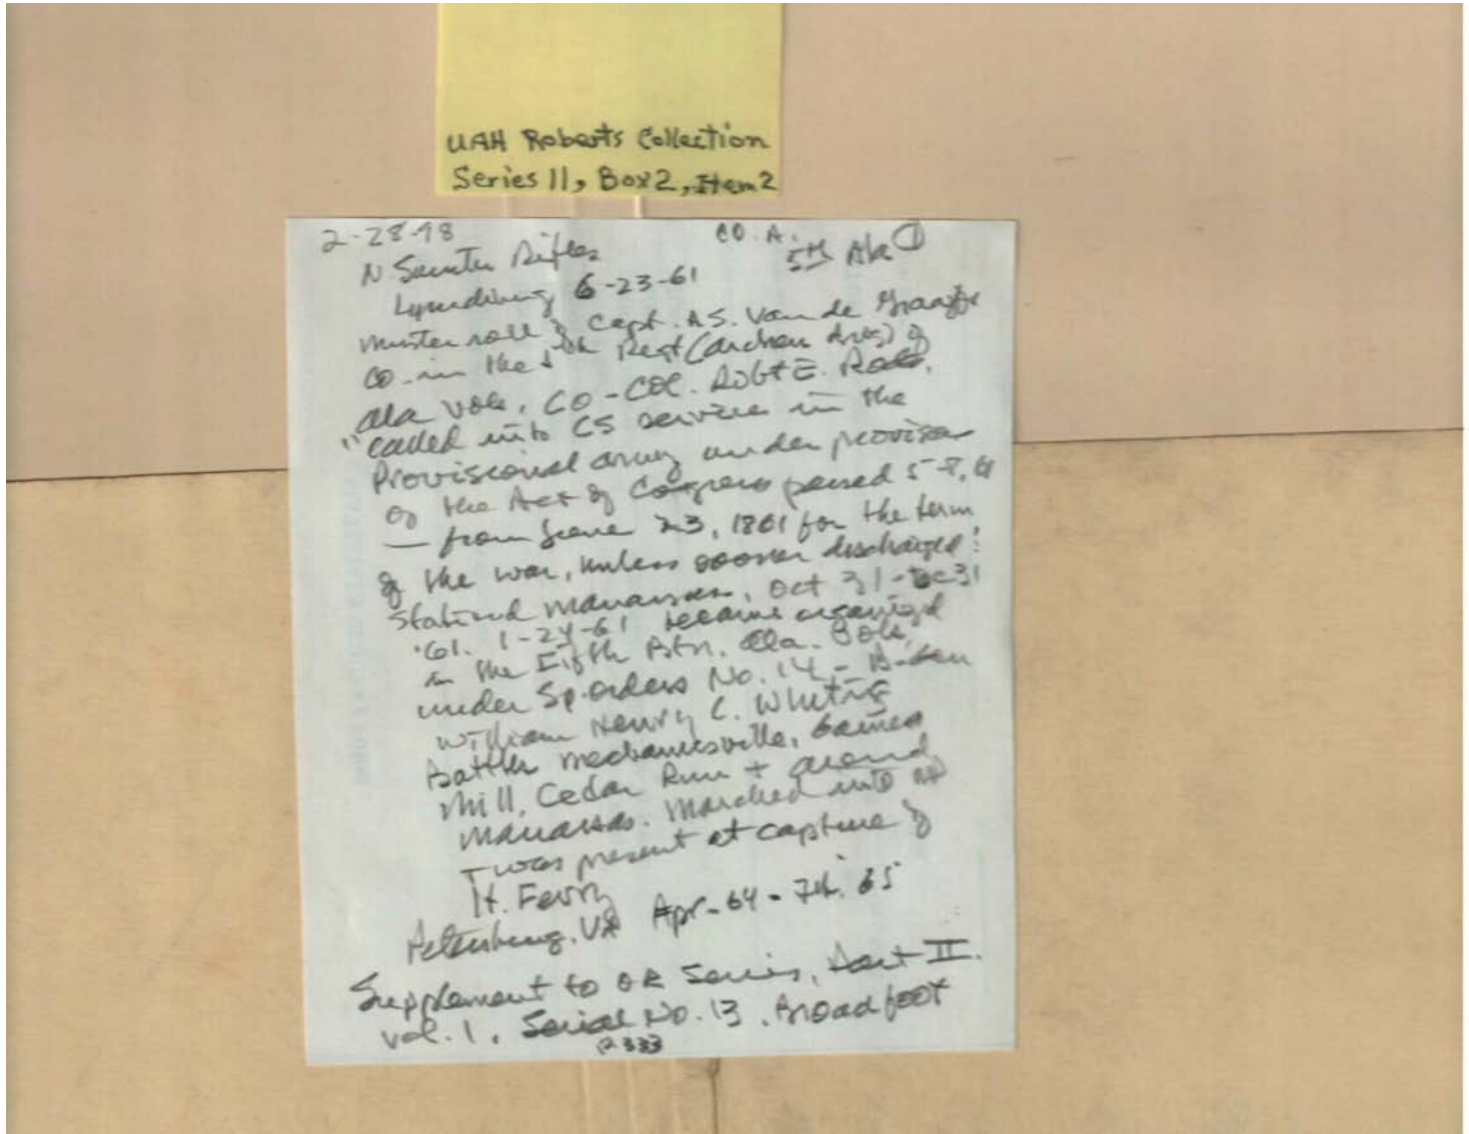 UAH Roberts Collection
Series 11, Box 2, Item 2
2-28-98 CO. A.
N Sumter Rifles 5th Ala ①
Lynchburg 6-23-61
muster roll of Capt. A.S. Van de Graaff
co. in the 5th Regt ( ) of
Ala Vols, CO-COL. Robt E. Rodes.
"called into CS service in the
Provisional army under provision
of the Act of Congress passed 5-8, 61
— from June 23, 1861 for the term
of the war, unless sooner discharged."
Stationed Manassas, Oct 31-Dec 31
'61. 1-24-61 became organized
in the Fifth Btn. Ala. Vols,
under Sp. orders No. 14 -
William Henry C. Whiting
Battles Mechanicsville, Gaines
Mill, Cedar Run + around
Manassas. Marched into
+ was present at capture of
H. Ferry
Petersburg, VA Apr-64 - Feb. 65
Supplement to OR Series, Part II.
Vol. 1, Serial No. 13, Broadfoot
P 333